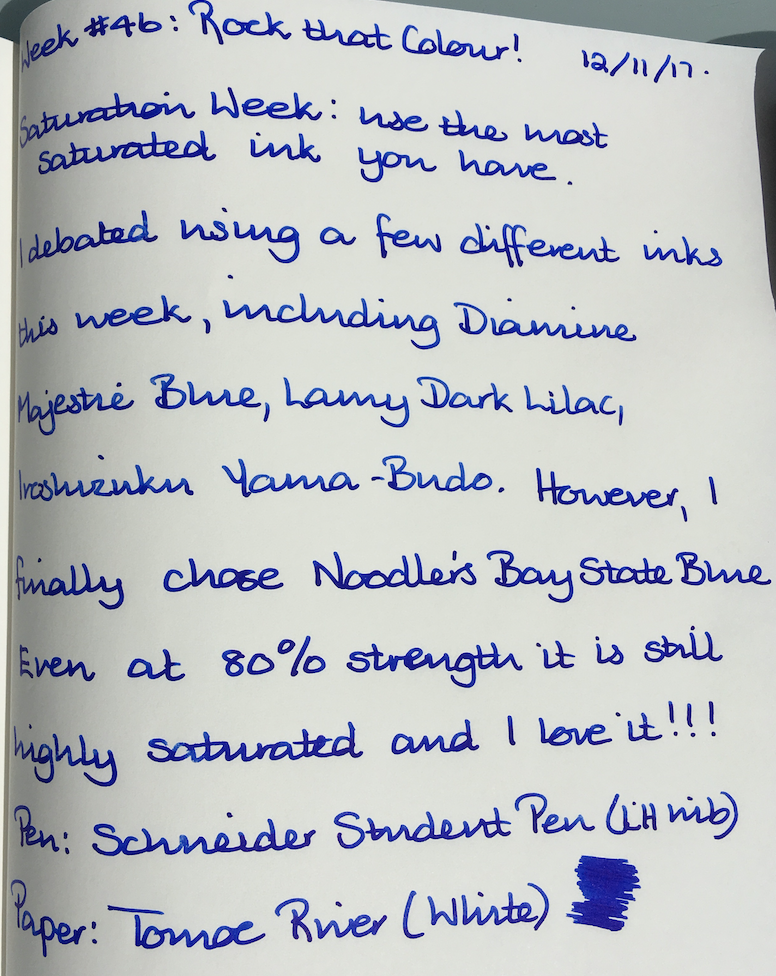 Week #46: Rock that Colour! 12/11/17.
Saturation Week: use the most
saturated ink you have.
I debated using a few different inks
this week, including Diamine
Majestic Blue, Lamy Dark Lilac,
Iroshizuku Yama-Budo. However, I
finally chose Noodler's Bay State Blue
Even at 80% strength it is still
highly saturated and I love it!!!
Pen: Schneider Student Pen (LH nib)
Paper: Tomoe River (White)